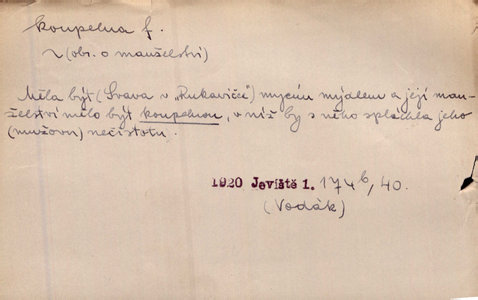 koupelna f.
~ (obr. o manželství)
Měla být (Svava v „Rukavičce“) mycím mýdlem a její man-
želství mělo být koupelnou, v níž by s něho splachla jeho
(mužovu) nečistotu.
1920 Jeviště 1. 174b, 40.
(Vodák)